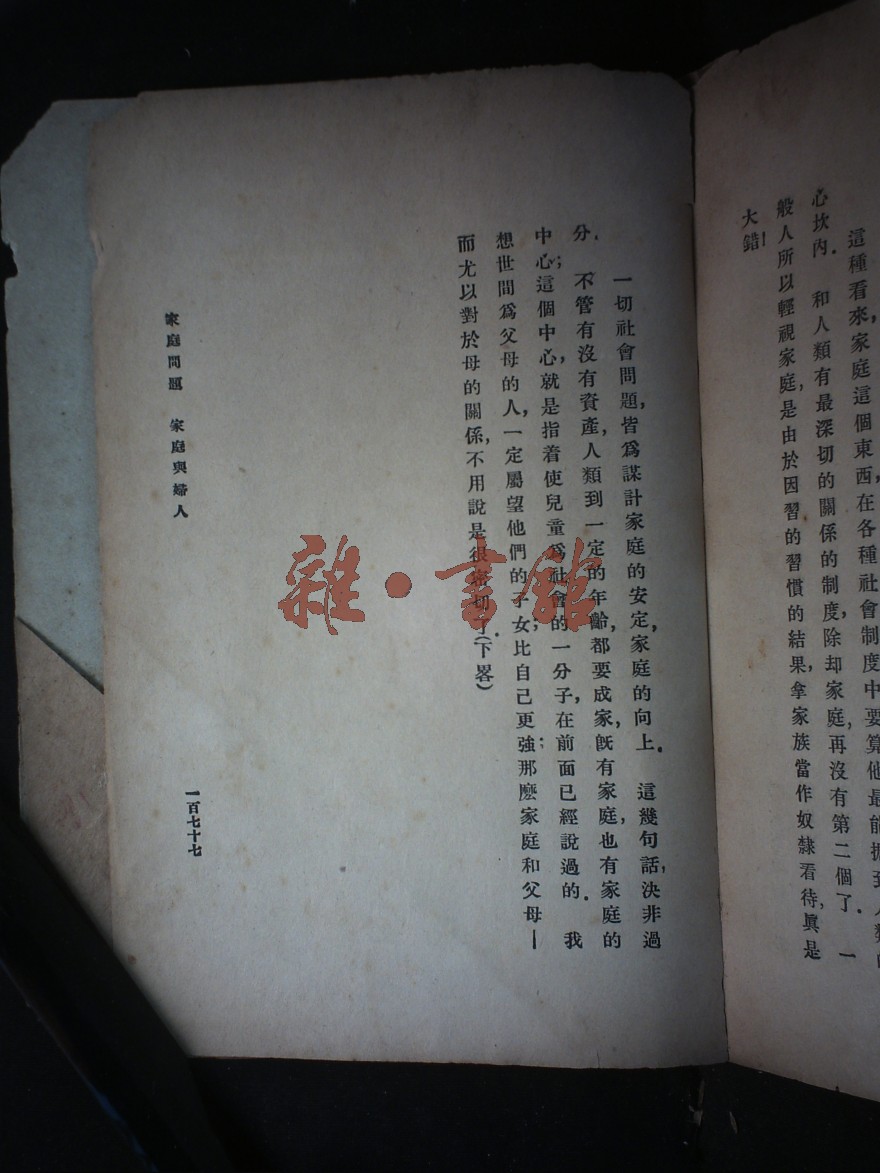 這種看來,家庭這個東西,在各種社會制度中要算他最能抓到人類的
心坎內.　和人類有最深切的關係的制度,除却家庭,再沒有第二個了.　一
般人所以輕視家庭,是由於因習的習慣的結果,拿家族當作奴隸看待,眞是
大錯!
一切社會問題,皆爲謀計家庭的安定,家庭的向上.　這幾句話,決非過
分.　不管有沒有資產,人類到一定的年齡,都要成家,旣有家庭,也有家庭的
中心;這個中心,就是指着使兒童爲社會的一分子,在前面已經說過的.　我
想世間爲父母的人,一定屬望他們的子女比自己更強;那麽家庭和父母—
而尤以對於母的關係,不用說是很密切了.(下畧)
家庭問題　家庭與婦人
一百七十七
雜·書館